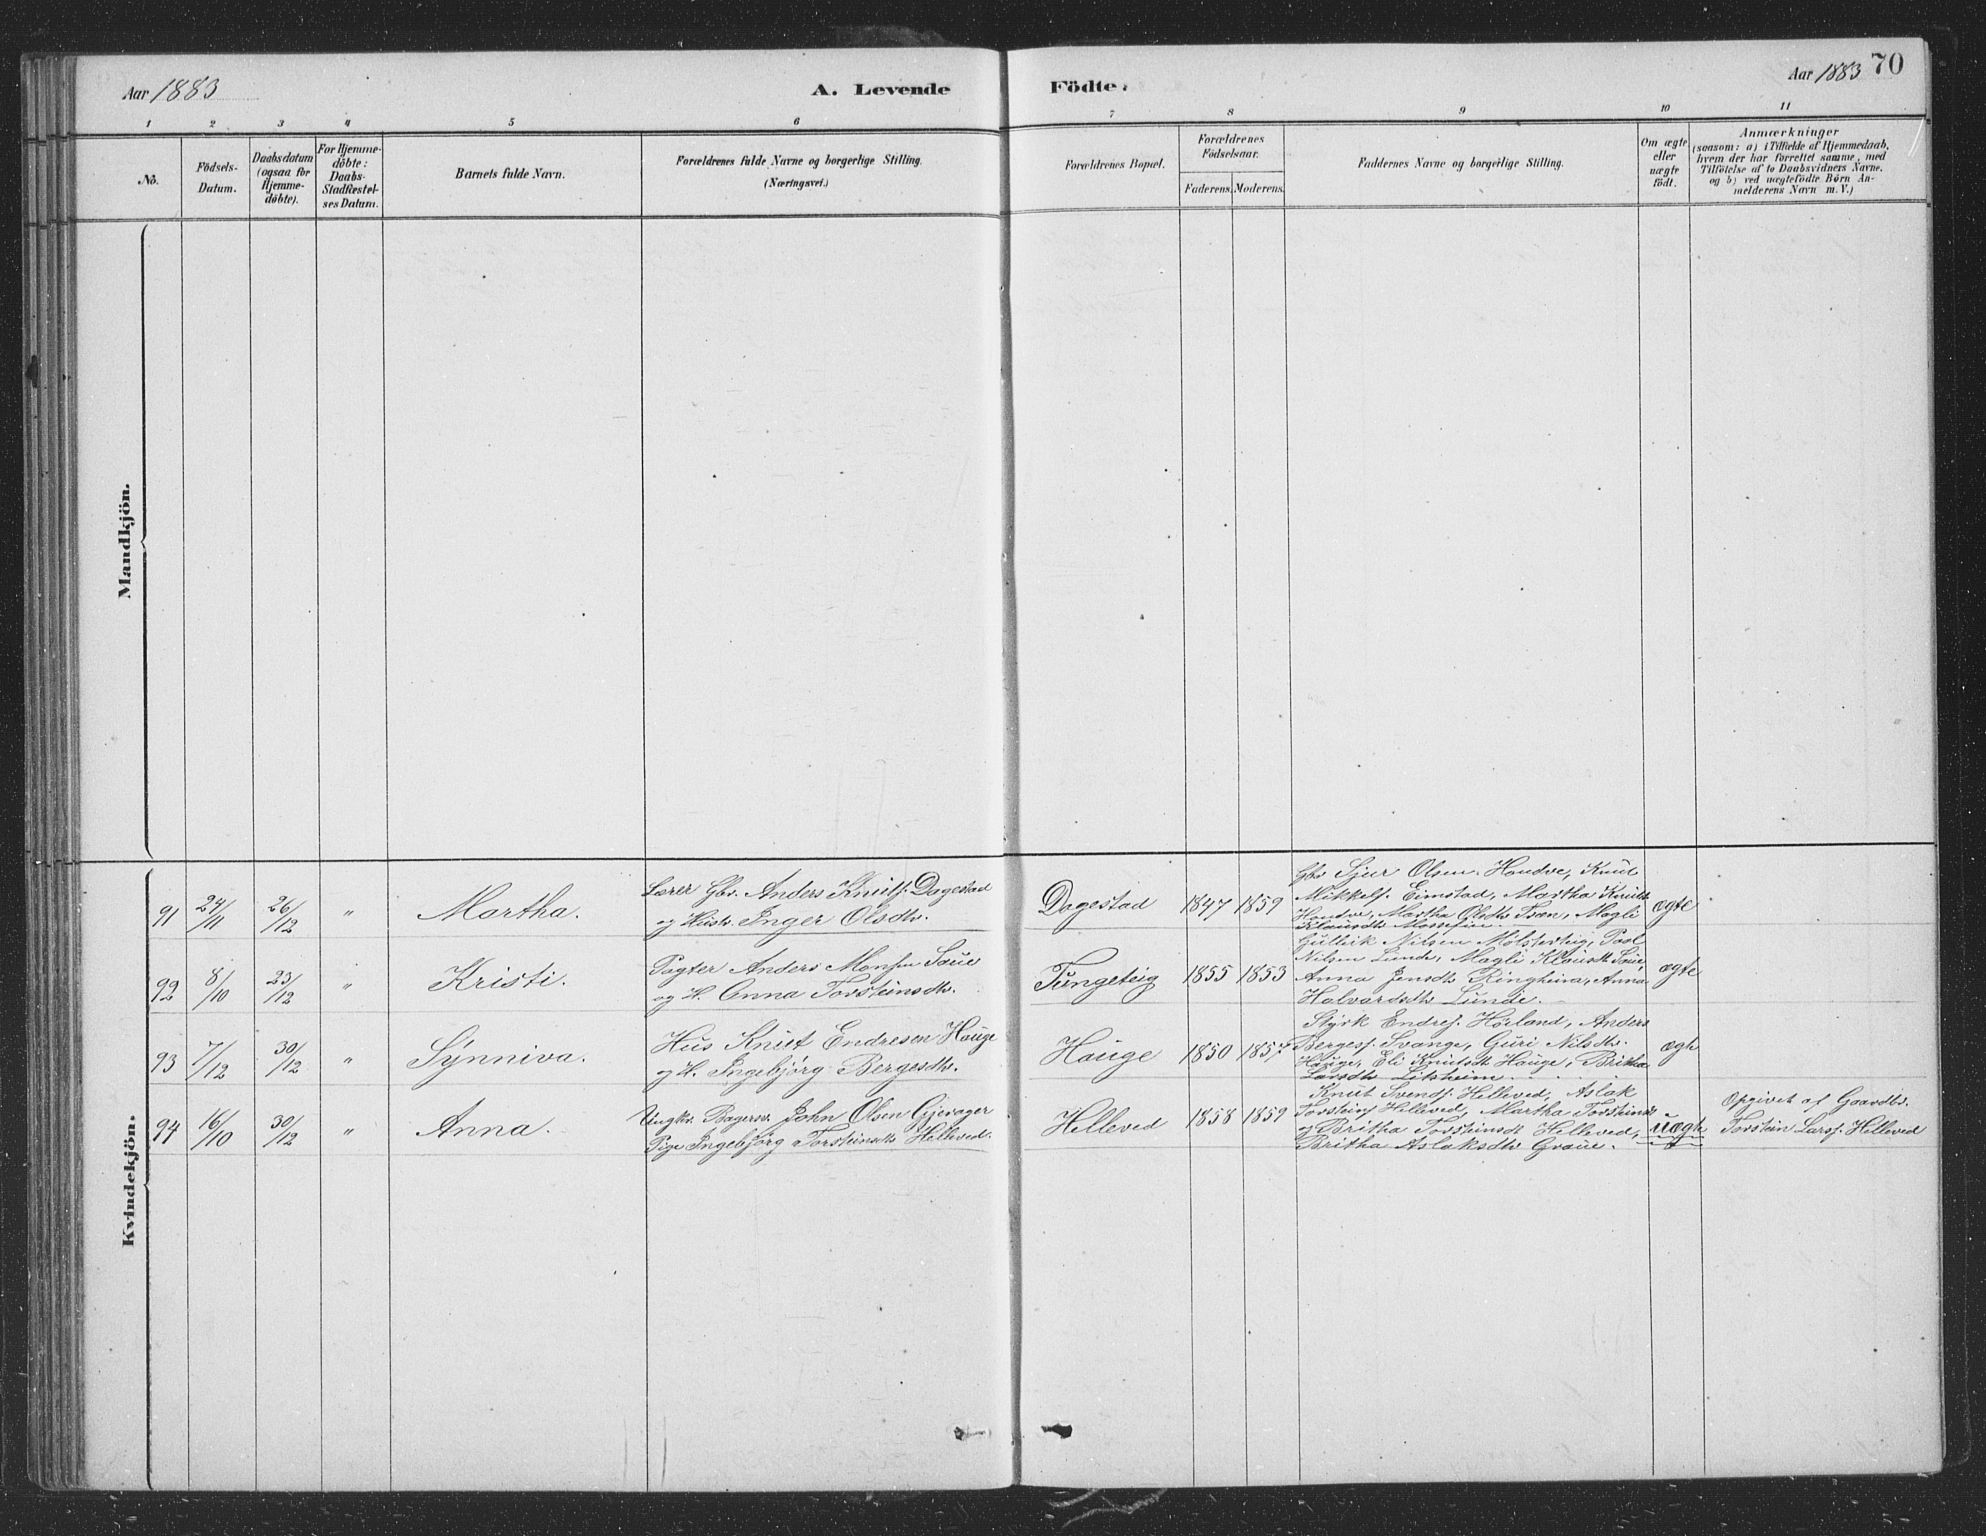 Aar 1883
A. Levende Födte.
Aar 1883 70
1 2 3 4 5 6 7 8 9 10 11
No.
Födsels-Datum.
Daabsdatum (ogsaa for Hjemme-döbte).
For Hjemme-döbte: Daabs-Stadfæstel-ses Datum.
Barnets fulde Navn.
Forældrenes fulde Navne og borgerlige Stilling.
(Næringsvei.)
Forældrenes Bopæl.
Forældrenes Födselsaar.
Faderens. Moderens.
Faddernes Navne og borgerlige Stilling.
Om ægte eller uægte födt.
Anmærkninger
(saasom: a) i Tilfælde af Hjemmedaab,
hvem der har forrettet samme, med
Tilföielse af to Daabsvidners Navne,
og b) ved uægtefödte Börn An-
melderens Navn m. V.)
Mandkjön.
Kvindekjön.
91 24/11 26/12 " Martha.
Lærer Gbr. Anders Knutsf. Dagestad
og Hustr. Inger Olsdtr.
Dagestad 1847 1859
Gbr Sjur Olsen Handve, Knut
Mikkelsf. Eimstad, Martha Knutsdt
Handve, Martha Olsdtr Træn, Magli
Klausdtr
ægte
92 8/10 23/12 " Kristi.
Pagter Anders Monsen Saue
og H. Anna Torsteinsdtr.
Tungeteig 1855 1853
Gulleik Nilsen Mölsterteig, Pool
Nilsen Lunde, Magli Klausdt Saue
Anna Jensdtr Ringheim, Anna
Halvardsdtr Lunde.
ægte
93 7/12 30/12 " Synniva.
Hus Knut Endresen Hauge
og H. Ingebjörg Bergesdtr.
Hauge 1850 1857
Styrk Endresf. Hörland, Anders
Bergesf. Svange, Guri Nilsdtr.
Hauge, Eli Knutsdt Hauge, Britha
Larsdtr Litsheim
ægte
94 16/10 30/12 " Anna.
Ungkr. Bagersv. John Olsen Gjerager
Pige Ingebjörg Torsteinsdtr Helleved.
Helleved 1858 1859
Knut Svendsf. Helleved, Aslak
Torsteinsf Helleved, Martha Torsteinsdt
og Britha Torsteinsdt Helleved,
Britha Aslaksdtr Graue.
uægte
Opgivet af Gaardbr.
Torstein Larsf. Helleved